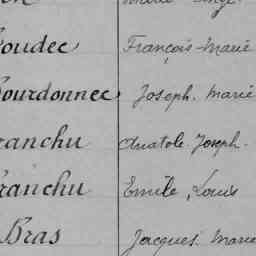 oudec François-Marie
ourdonnec Joseph. Marie
ranchu Anatole. Joseph.
ranchu Emile, Louis
Bras Jacques. Marie